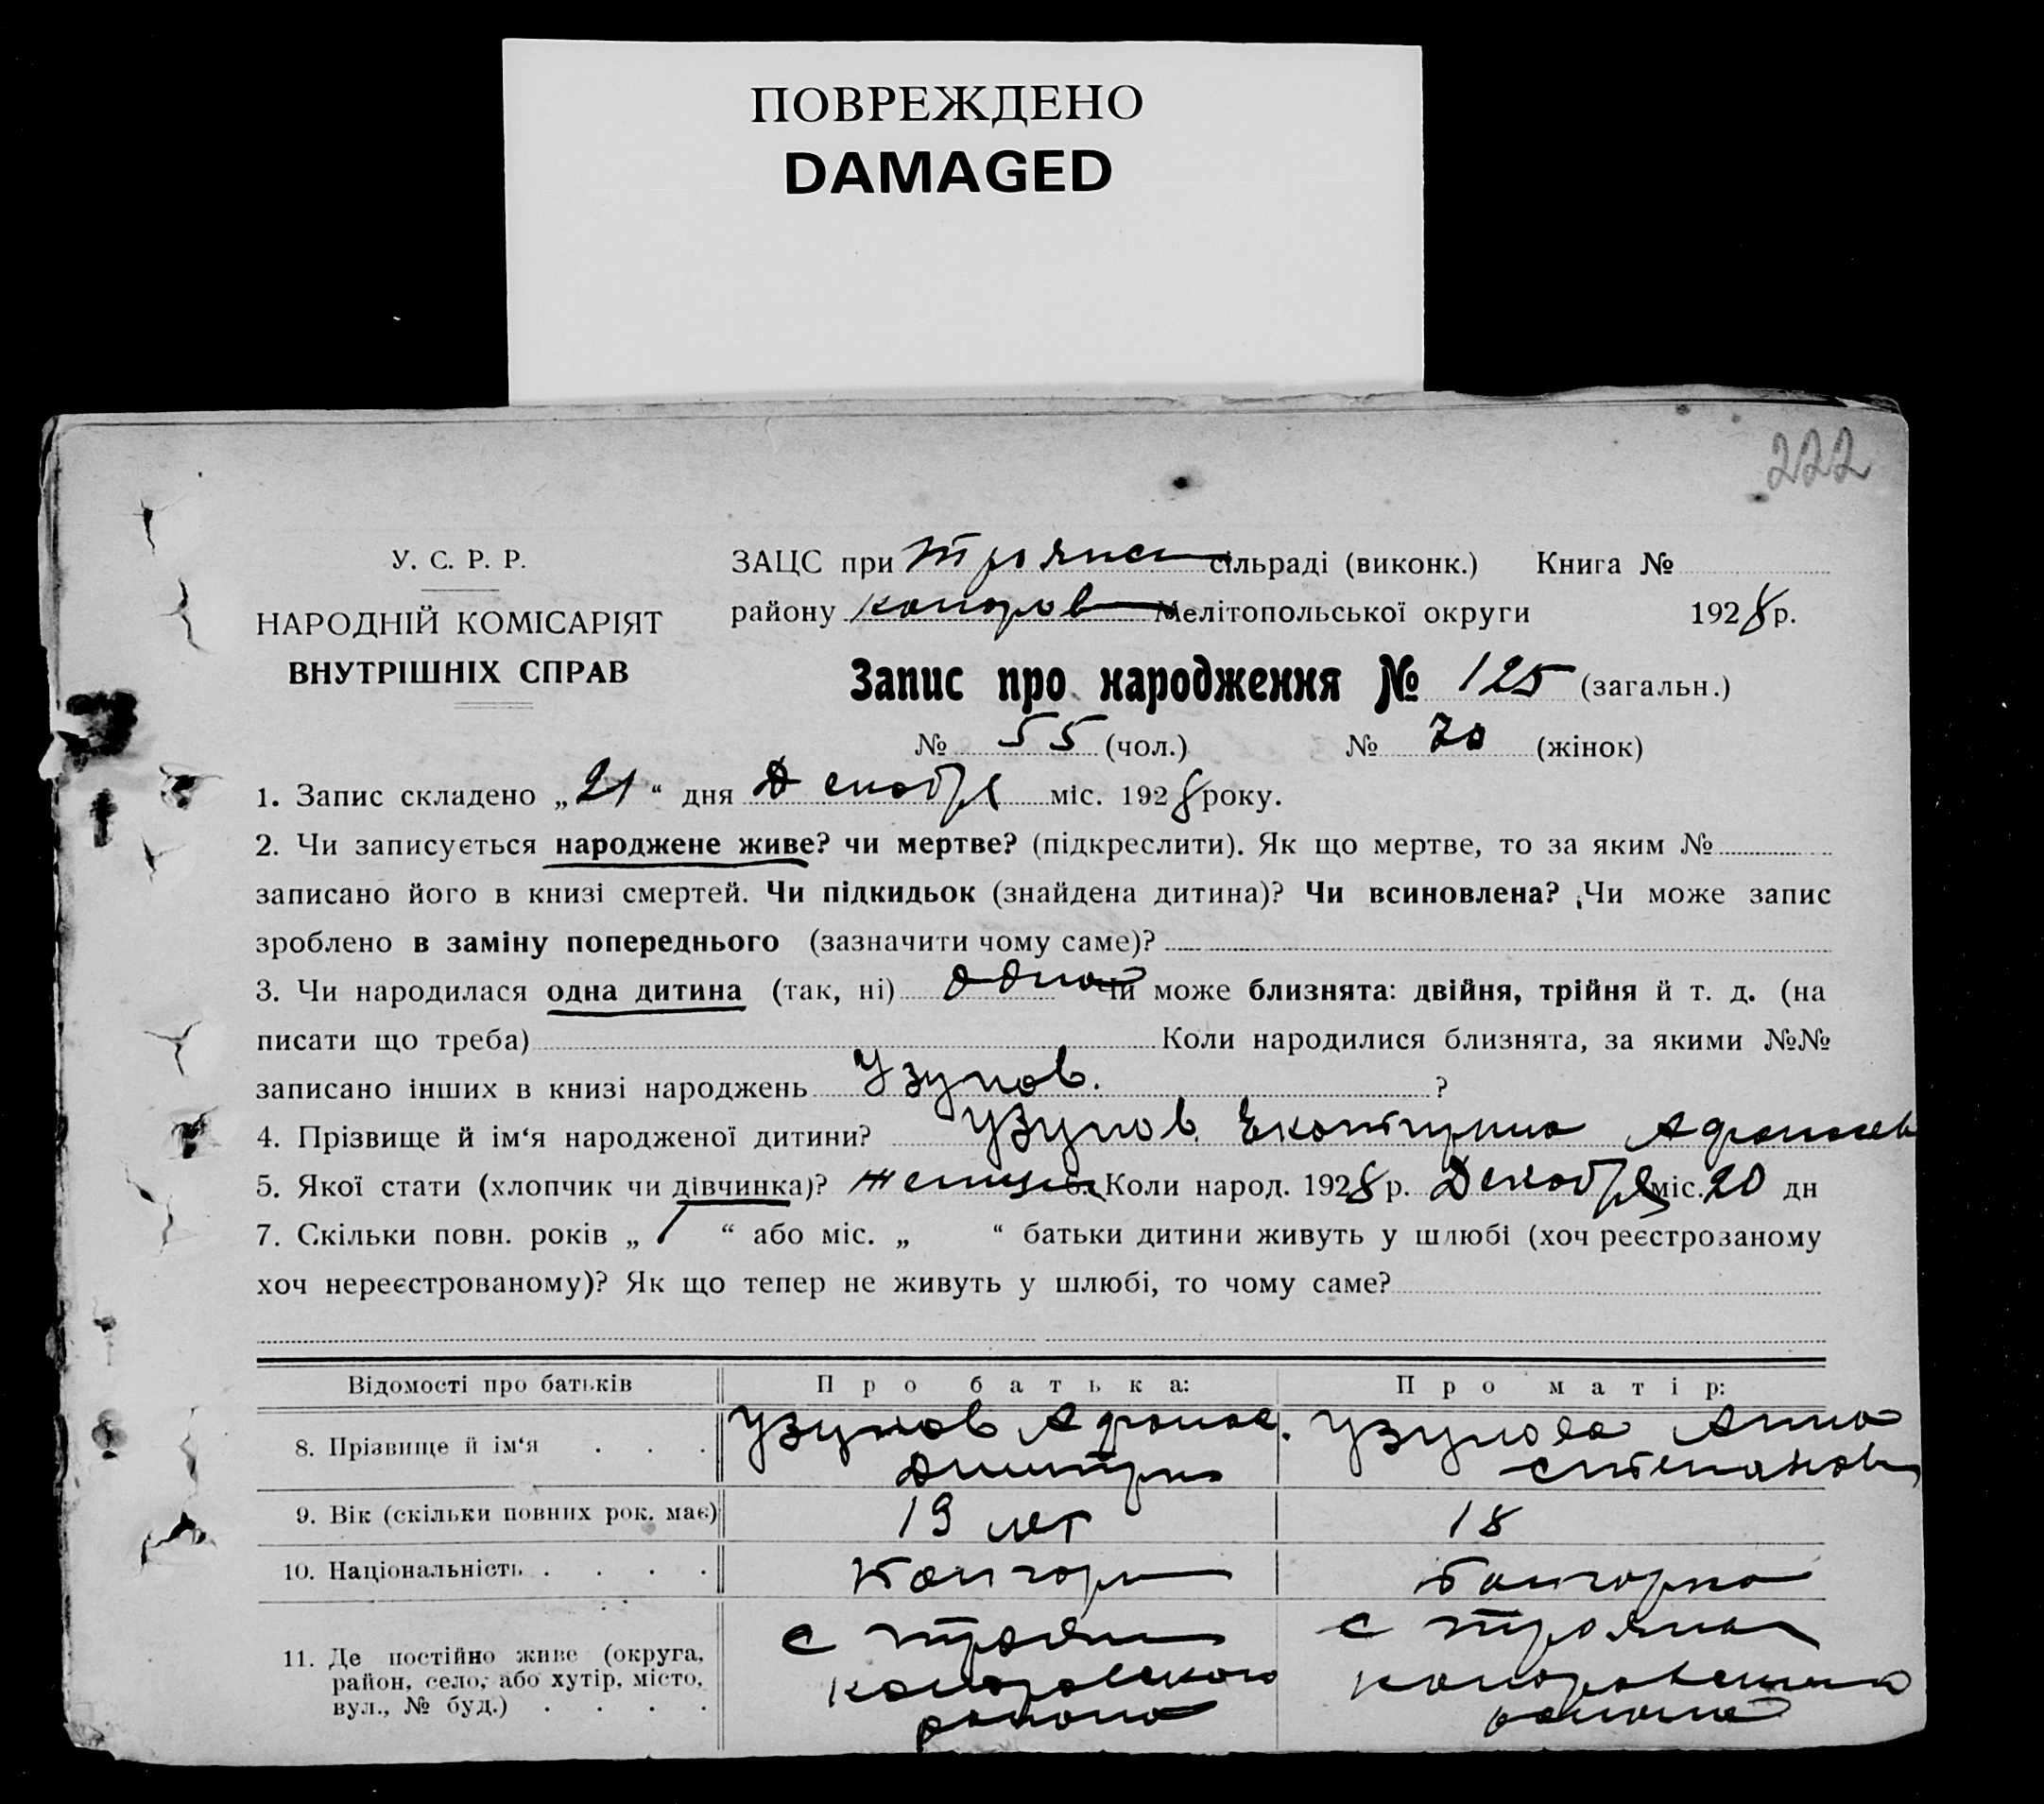 ПОВРЕЖДЕНО
DAMAGED
222
У. С. Р. Р.
НАРОДНІЙ КОМІСАРІЯТ
ВНУТРІШНІХ СПРАВ
ЗАЦС при Троянс сільраді (виконк.) Книга №
району Мелітопольської округи 1928 р.
Запис про народження № 125 (загальн.)
№ 55 (чол.) № 70 (жінок)
1. Запис складено „21“ дня Декабря міс. 1928 року.
2. Чи записується народжене живе? чи мертве? (підкреслити). Як що мертве, то за яким №
записано його в книзі смертей. Чи підкидьок (знайдена дитина)? Чи всиновлена? Чи може запис
зроблено в заміну попереднього (зазначити чому саме)?
3. Чи народилася одна дитина (так, ні) одна Чи може близнята: двійня, трійня й т. д. (на
писати що треба) Коли народилися близнята, за якими №№
записано інших в книзі народжень Узунов. ?
4. Прізвище й ім‘я народженої дитини? Узунов Екатирина Афанасев
5. Якої стати (хлопчик чи дівчинка)? женщин 6. Коли народ. 1928 р. Декабря міс. 20 дн
7. Скільки повн. років „1“ або міс. „ “ батьки дитини живуть у шлюбі (хоч реєстрозаному
хоч нереєстрованому)? Як що тепер не живуть у шлюбі, то чому саме?
Відомості про батьків Про батька: Про матір:
8. Прізвище й ім‘я . . . Узунов Афанас. Узунова Анна
Дмитри Степанов
9. Вік (скільки повних рок. має) 19 лет 18
10. Національність . . . . Болгарин болгарка
11. Де постійно живе (округа, с Троян с Троян
район, село, або хутір, місто,
вул., № буд.) . . . . района района